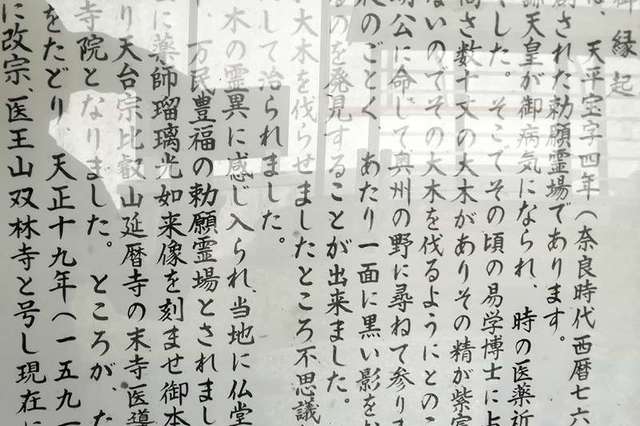 縁起
、天平宝字四年(奈良時代西暦七六
創された勅願霊場であります。
謙天皇が御病気になられ、時の医薬祈
した。そこでその頃の易学博士に占
高さ数十丈の大木がありその精が紫宸
ないのでその大木を伐るようにとのこ
公に命して奥州の野に尋ねて参りま
のごとく、あたり一面に黒い影をお
るのを発見することが出来ました。
大木を伐らせましたところ不思議
して治られました。
木の霊異に感じ入られ、当地に仏堂
万民豊福の勅願霊場とされまし
に薬師瑠璃光如来像を刻ませ御本
り天台宗比叡山延暦寺の末寺医導
寺院となりました。ところが、た
をたどり、天正十九年(一五九一
に改宗、医王山双林寺と号し現在に